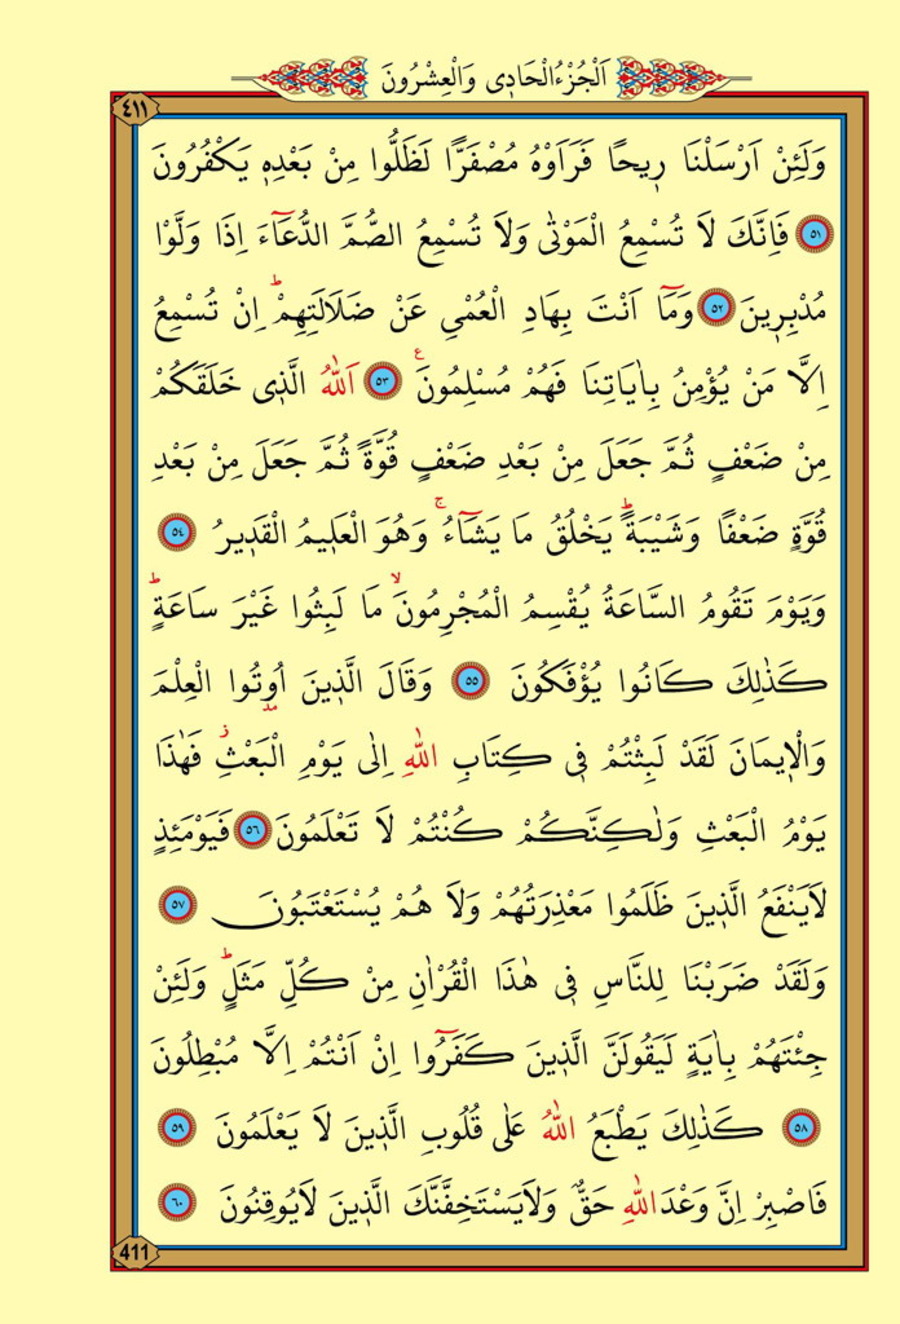 اَلْجُزْءُالْحَادِى وَالْعِشْرُونَ
٤١١
وَلَئِنْ اَرْسَلْنَا رِيحًا فَرَاَوْهُ مُصْفَرًّا لَظَلُّوا مِنْ بَعْدِهِ يَكْفُرُونَ
٥١ فَاِنَّكَ لَا تُسْمِعُ الْمَوْتٰى وَلَا تُسْمِعُ الصُّمَّ الدُّعَٓاءَ اِذَا وَلَّوْا
مُدْبِرِينَ ٥٢ وَمَٓا اَنْتَ بِهَادِ الْعُمْيِ عَنْ ضَلَالَتِهِمْۜ اِنْ تُسْمِعُ
اِلَّا مَنْ يُؤْمِنُ بِاٰيَاتِنَا فَهُمْ مُسْلِمُونَ ع ٥٣ اَللّٰهُ الَّذِى خَلَقَكُمْ
مِنْ ضَعْفٍ ثُمَّ جَعَلَ مِنْ بَعْدِ ضَعْفٍ قُوَّةً ثُمَّ جَعَلَ مِنْ بَعْدِ
قُوَّةٍ ضَعْفًا وَشَيْبَةًۜ يَخْلُقُ مَا يَشَٓاءُۚ وَهُوَ الْعَلِيمُ الْقَدِيرُ ٥٤
وَيَوْمَ تَقُومُ السَّاعَةُ يُقْسِمُ الْمُجْرِمُونَۙ مَا لَبِثُوا غَيْرَ سَاعَةٍۜ
كَذٰلِكَ كَانُوا يُؤْفَكُونَ ٥٥ وَقَالَ الَّذِينَ اُوتُوا الْعِلْمَ
وَالْاِيمَانَ لَقَدْ لَبِثْتُمْ فِى كِتَابِ اللّٰهِ اِلٰى يَوْمِ الْبَعْثِۘ فَهٰذَا
يَوْمُ الْبَعْثِ وَلٰكِنَّكُمْ كُنْتُمْ لَا تَعْلَمُونَ ٥٦ فَيَوْمَئِذٍ
لَايَنْفَعُ الَّذِينَ ظَلَمُوا مَعْذِرَتُهُمْ وَلَا هُمْ يُسْتَعْتَبُونَ ٥٧
وَلَقَدْ ضَرَبْنَا لِلنَّاسِ فِى هٰذَا الْقُرْاٰنِ مِنْ كُلِّ مَثَلٍۜ وَلَئِنْ
جِئْتَهُمْ بِاٰيَةٍ لَيَقُولَنَّ الَّذِينَ كَفَرُٓوا اِنْ اَنْتُمْ اِلَّا مُبْطِلُونَ
٥٨ كَذٰلِكَ يَطْبَعُ اللّٰهُ عَلٰى قُلُوبِ الَّذِينَ لَا يَعْلَمُونَ ٥٩
فَاصْبِرْ اِنَّ وَعْدَ اللّٰهِ حَقٌّ وَلَايَسْتَخِفَّنَّكَ الَّذِينَ لَايُوقِنُونَ ٦٠
411